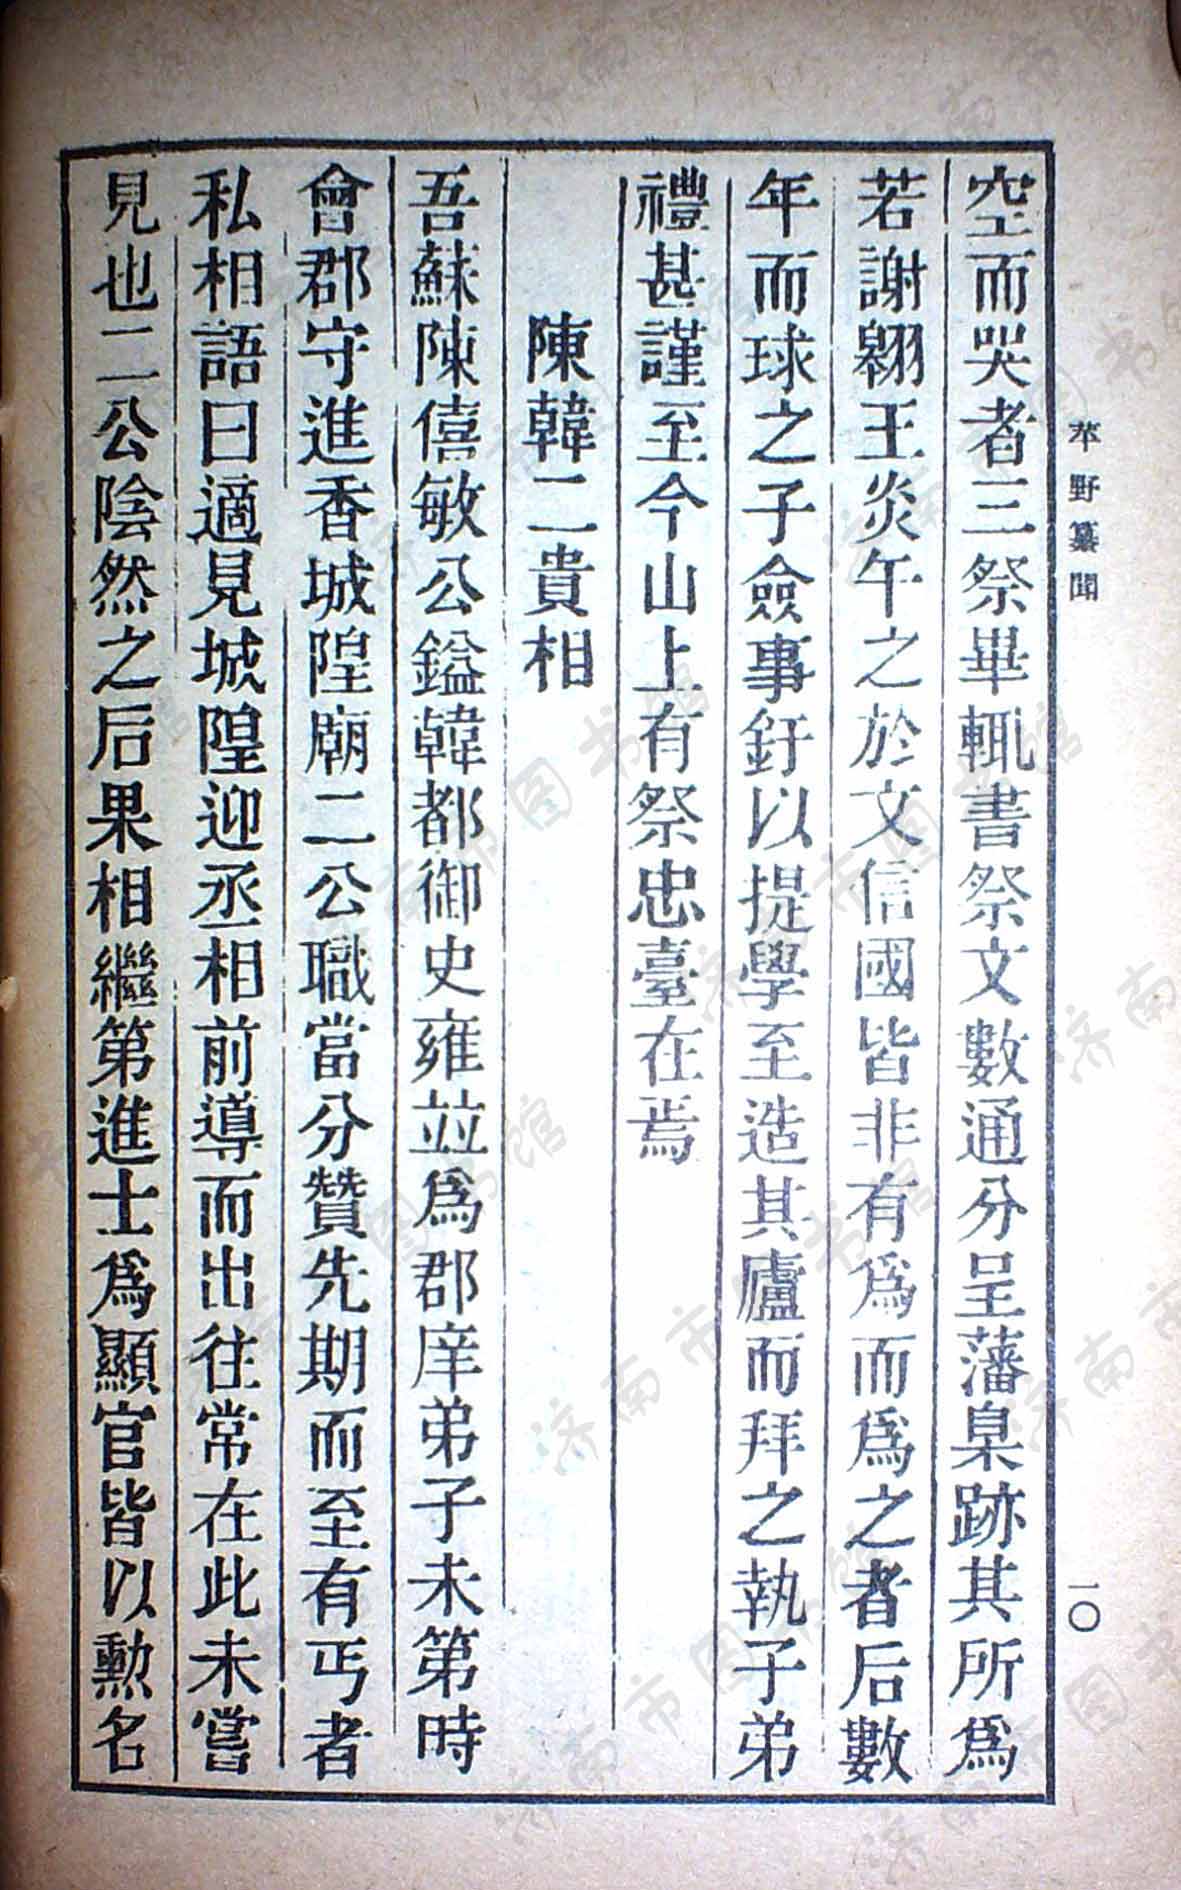 苹野纂聞
空而哭者三祭畢輒書祭文數通分呈藩臬跡其所爲
若謝翱王炎午之於文信國皆非有爲而爲之者后數
年而球之子僉事釪以提學至造其廬而拜之執子弟
禮甚謹至今山上有祭忠臺在焉
陳韓二貴相
吾蘇陳僖敏公鎰韓都御史雍並爲郡庠弟子未第時
會郡守進香城隍廟二公職當分贊先期而至有丐者
私相語曰適見城隍迎丞相前導而出往常在此未嘗
見也二公陰然之后果相繼第進士爲顯官皆以勲名
一〇
济南市图书馆